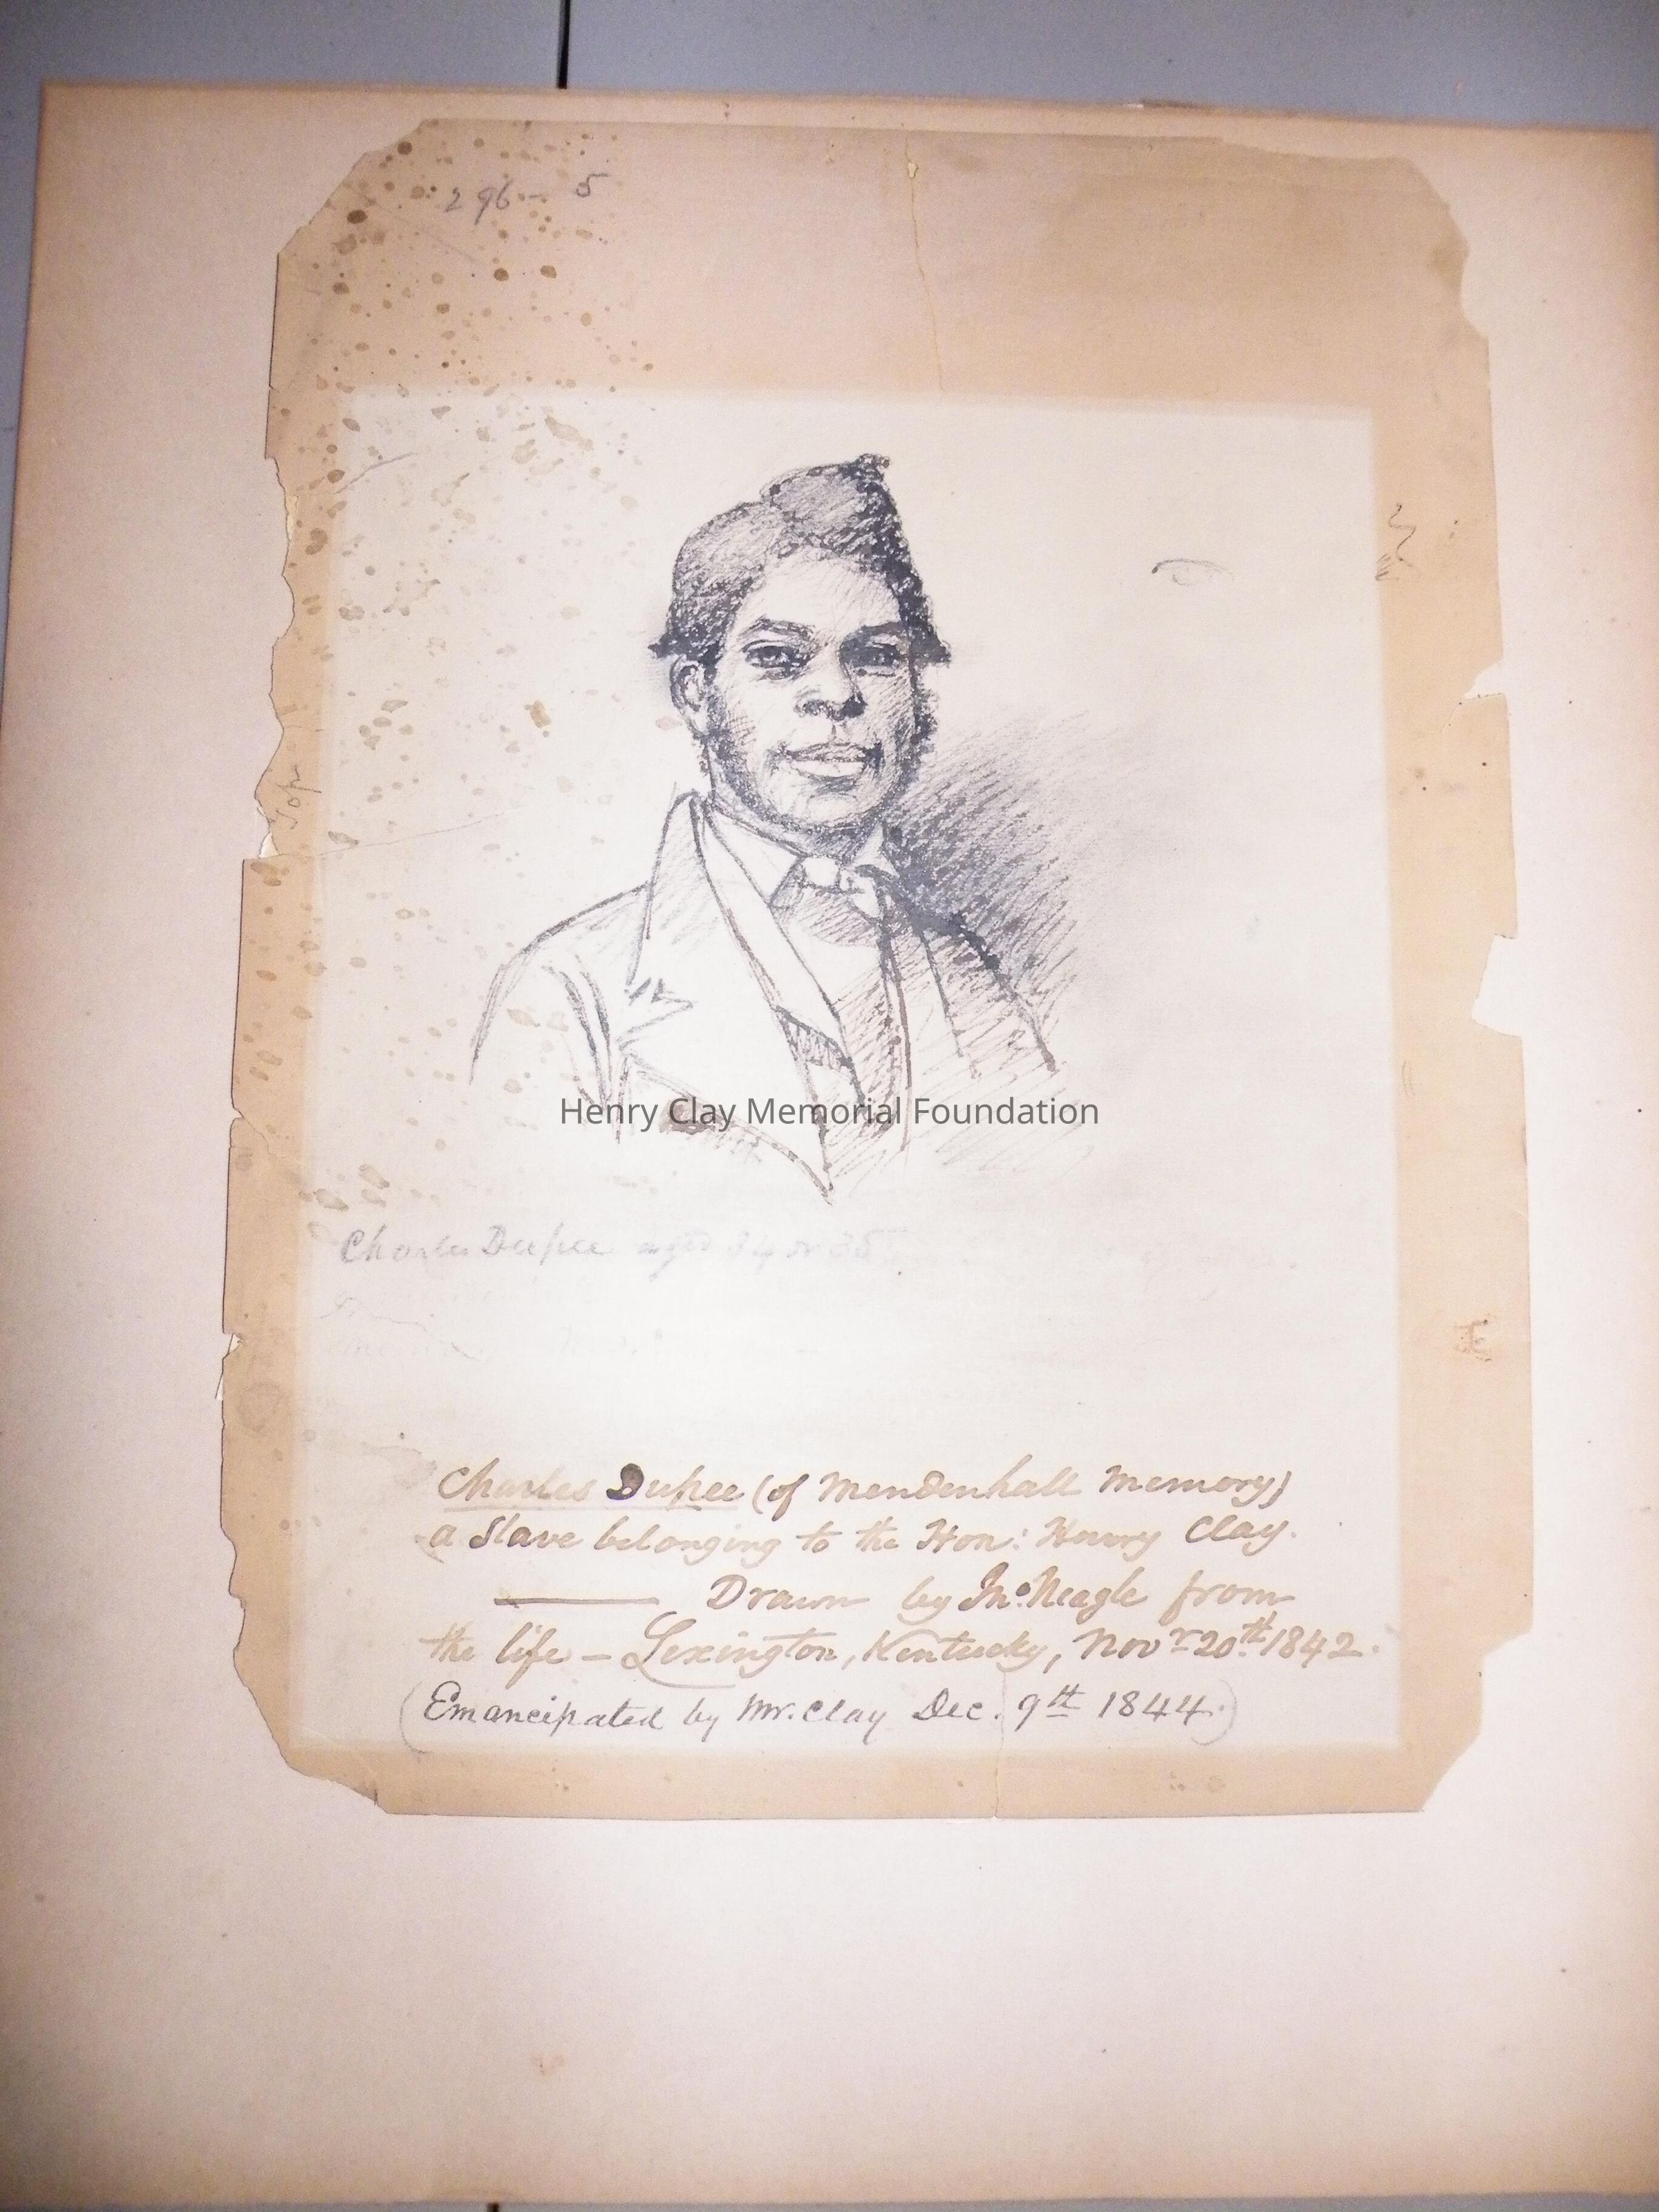 296 - 5
Top
Henry Clay Memorial Foundation
Charles Dupee aged 34 or 35
Charles Dupee (of Mendenhall Memory)
a Slave belonging to the Hon: Henry Clay.
Drawn by Jno. Neagle from
the life - Lexington, Kentucky, Novr 20th 1842.
(Emancipated by Mr. Clay Dec. 9th 1844.)